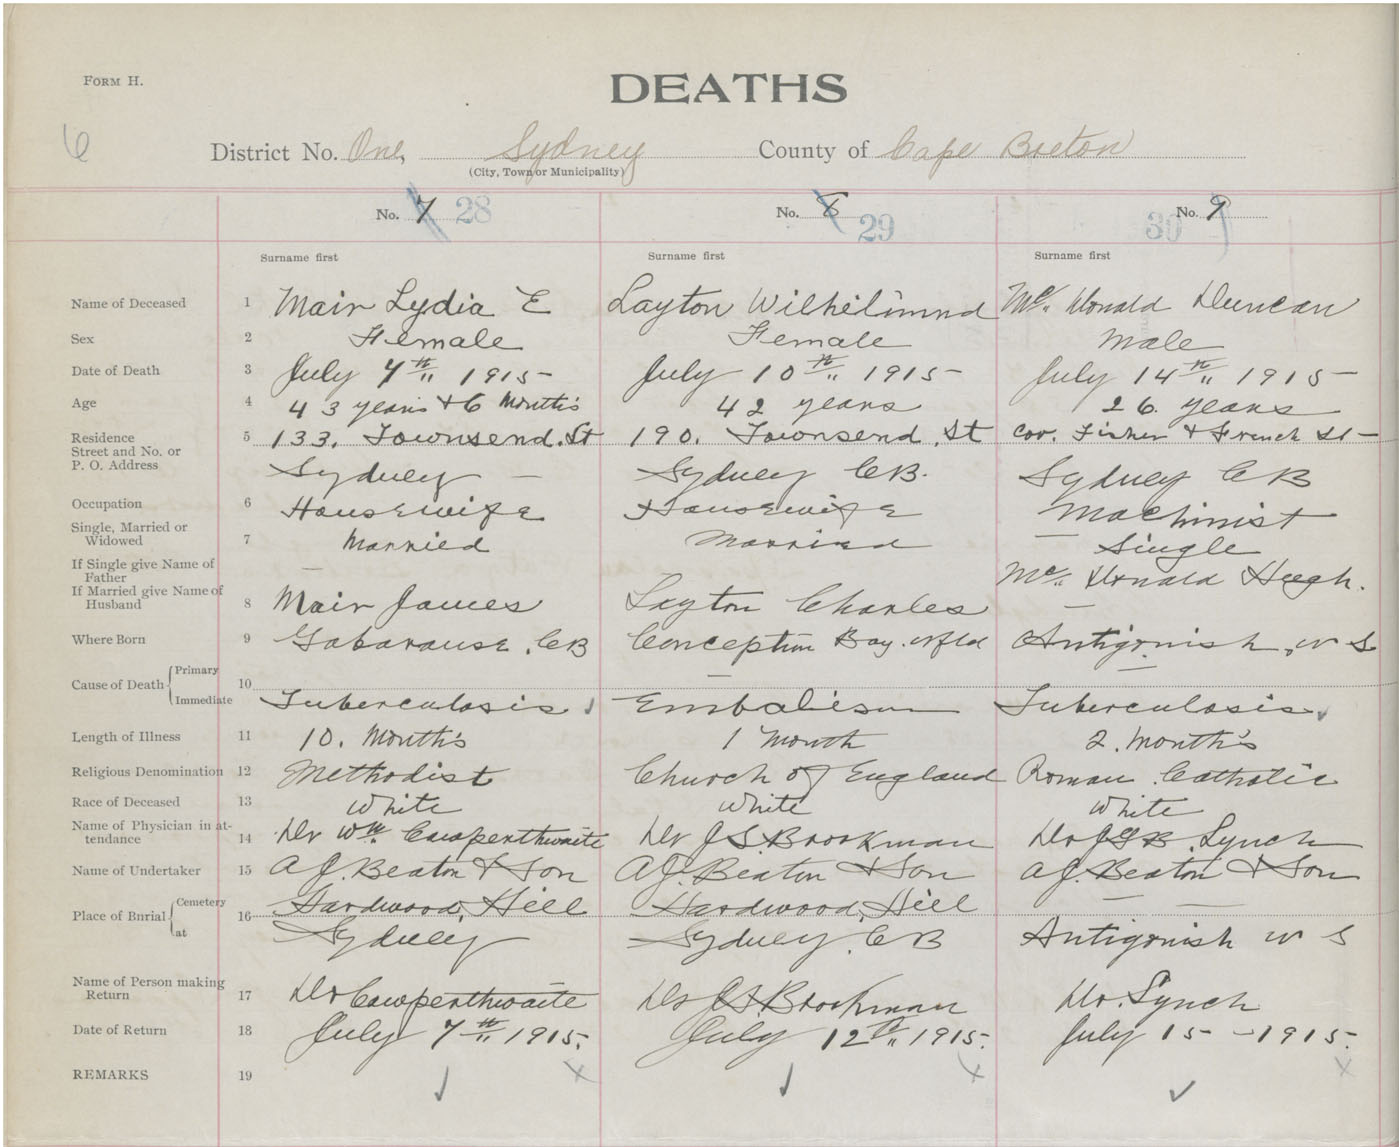 FORM H.
DEATHS
6
District No. One, Sydney County of Cape Breton
(City, Town or Municipality)
No. 7 28 No. 8 29 No. 9 30
Surname first Surname first Surname first
Name of Deceased 1 Mair Lydia E Layton Wilhelimnd Mc" Donald Duncan
Sex 2 Female Female Male
Date of Death 3 July 7th" 1915 July 10th" 1915 July 14th" 1915
Age 4 43 years + 6 Months 42 years 26. years
Residence 5 133. Townsend. St 190. Townsend. St cor. Fisher + French St
Street and No. or
P. O. Address Sydney Sydney CB. Sydney CB
Occupation 6 Housewife Housewife Machinist
Single, Married or
Widowed 7 Married Married Single
If Single give Name of
Father Mc" Donald Hugh.
If Married give Name of
Husband 8 Mair James Layton Charles
Where Born 9 Gabarause. CB Conception Bay. Nfld Antigonish. N S
Cause of Death Primary 10
Immediate Tuberculosis Embalism Tuberculosis
Length of Illness 11 10. Month's 1 Month 2. Month's
Religious Denomination 12 Methodist Church of England Roman Catholic
Race of Deceased 13 White White White
Name of Physician in at-
tendance 14 Dr Wm Cowperthwaite Dr J.S. Brookman Dr JGB. Lynch
Name of Undertaker 15 AJ. Beaton & Son AJ. Beaton & Son AJ. Beaton & Son
Place of Burial Cemetery 16 Hardwood, Hill Hardwood, Hill
at Sydney Sydney. CB Antigonish N S
Name of Person making
Return 17 Dr Cowperthwaite Dr J.S. Brookman Dr. Lynch
Date of Return 18 July 7th" 1915. July 12th" 1915. July 15 - 1915.
REMARKS 19